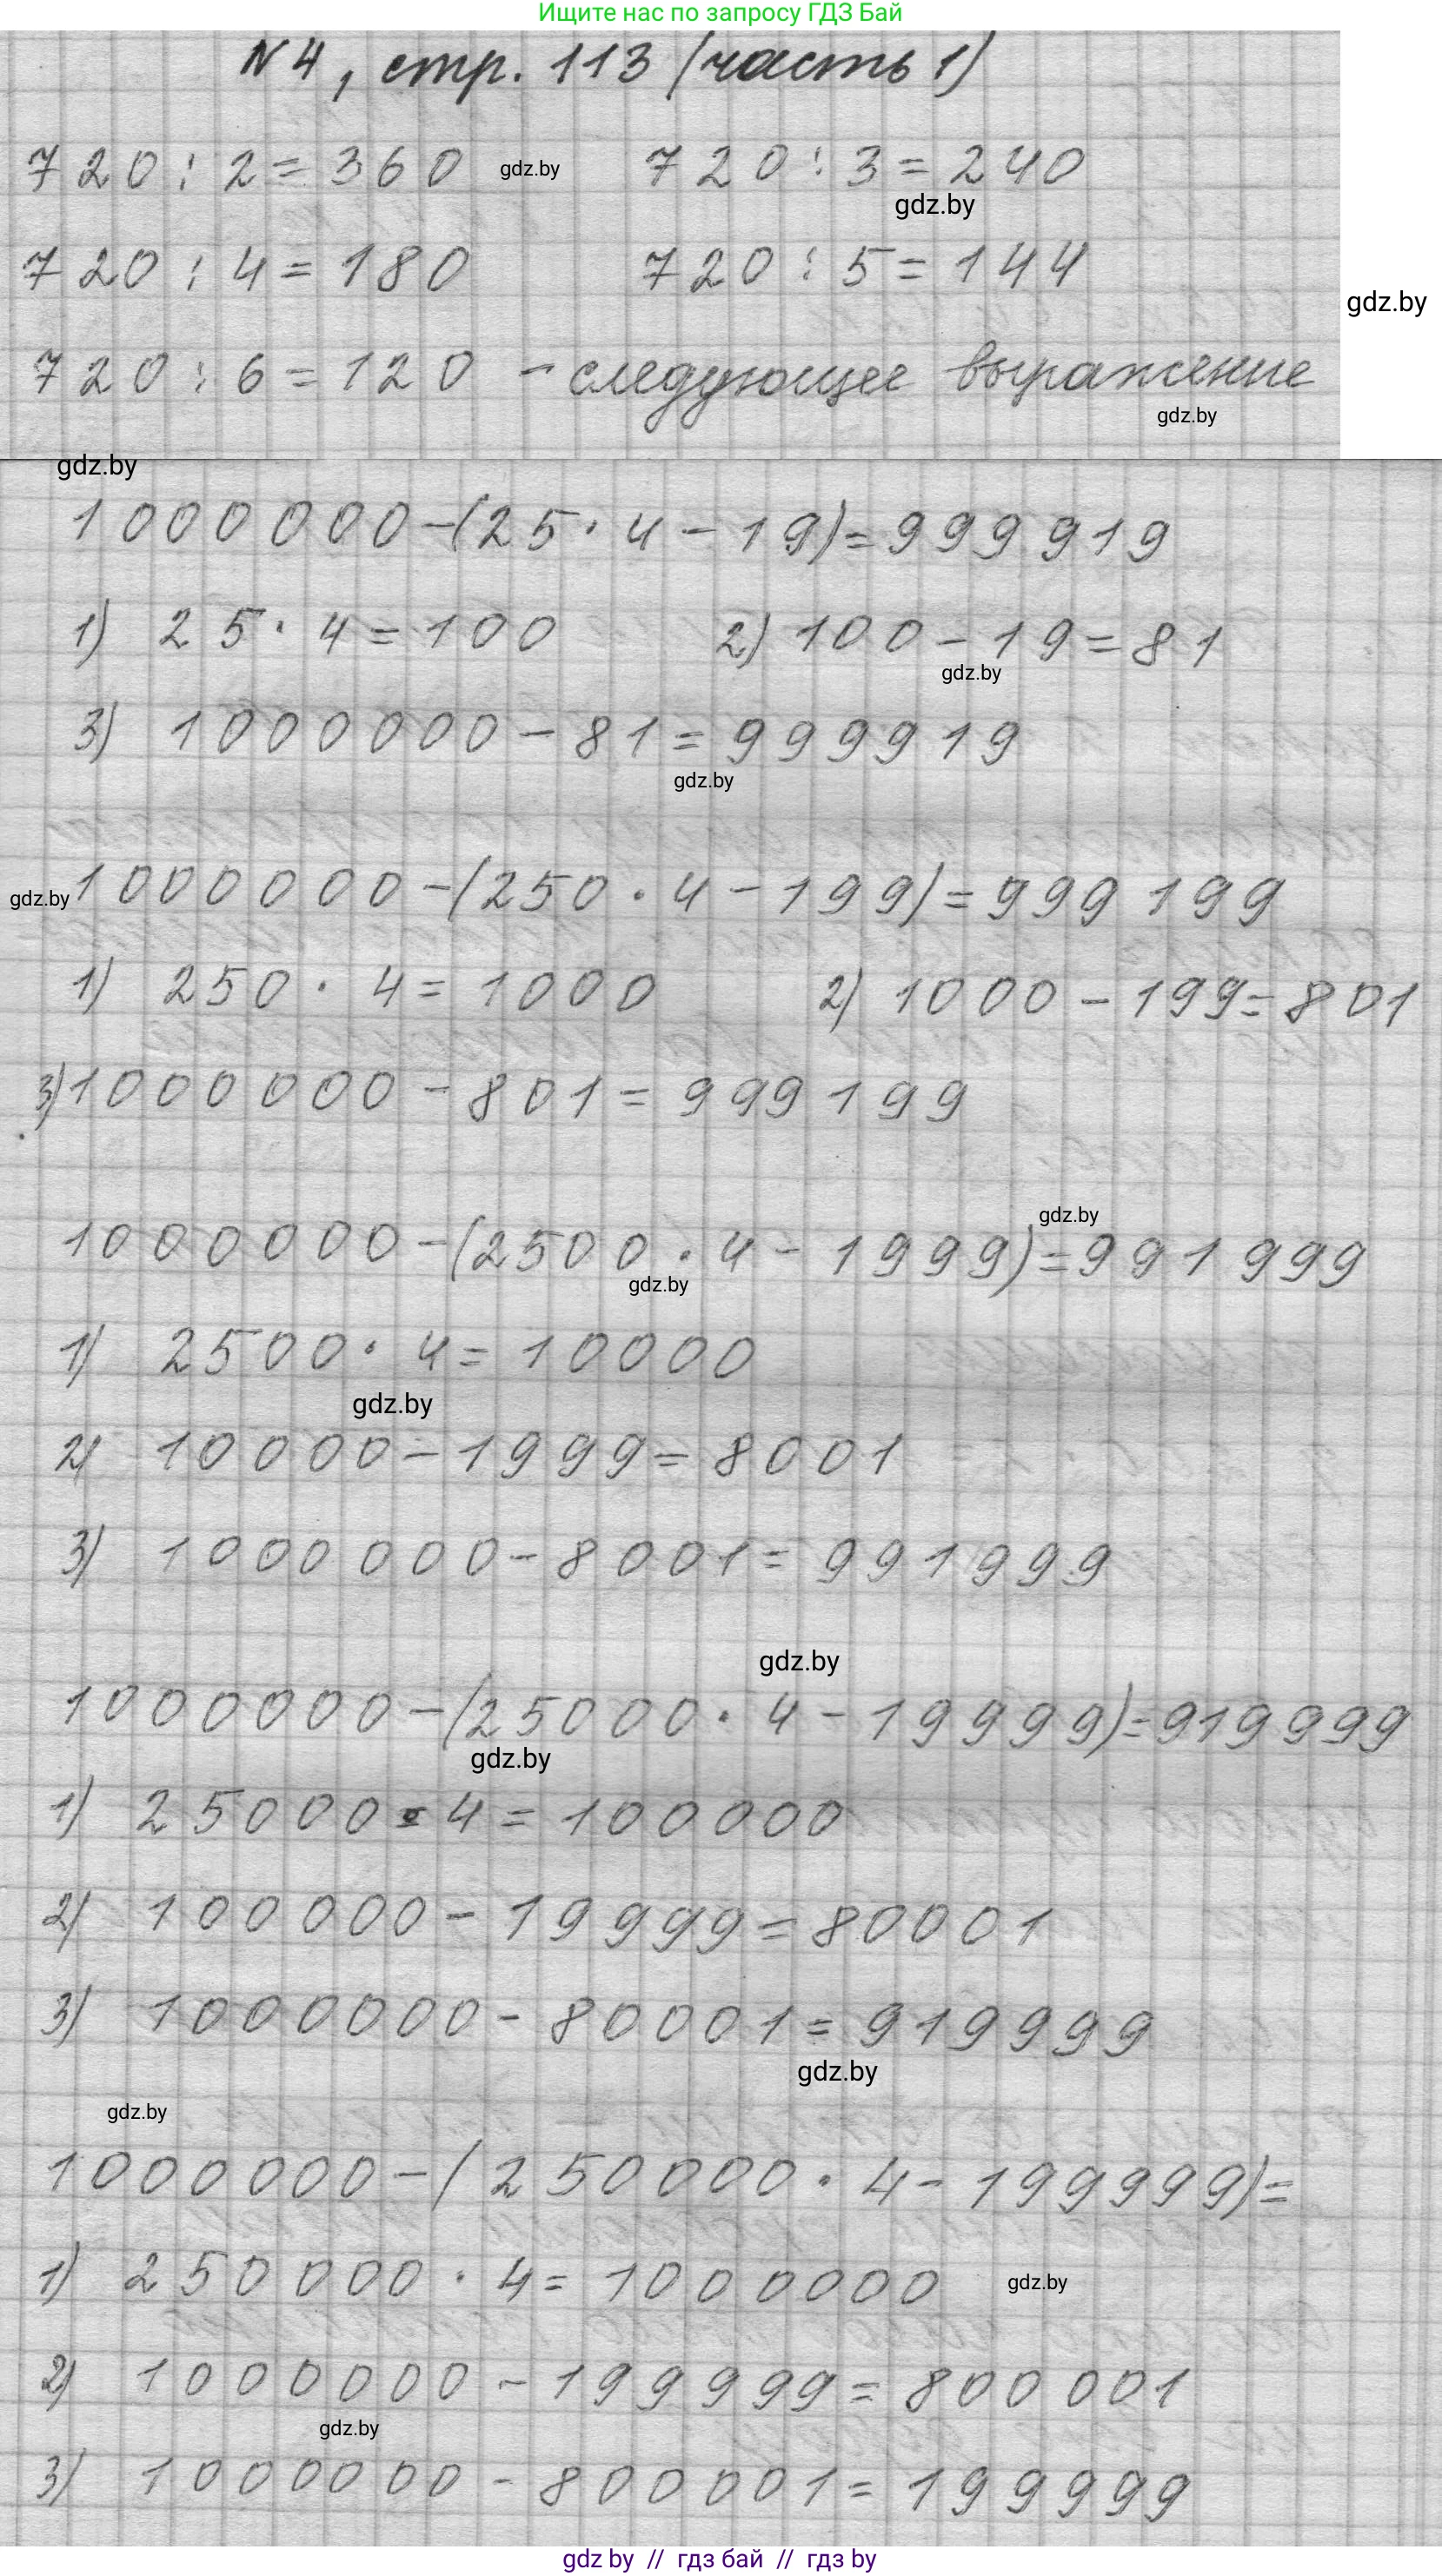 Ищите нас по запросу ГДЗ Бай
№4, стр. 113 (часть 1)
720 : 2 = 360 gdz.by 720 : 3 = 240
gdz.by
720 : 4 = 180 720 : 5 = 144
gdz.by
720 : 6 = 120 - следующее выражение
gdz.by
gdz.by
1000000-(25·4-19)=999919
1) 25·4=100 2) 100-19=81
gdz.by
3) 1000000-81=999919
gdz.by
gdz.by 1000000-(250·4-199)=999199
1) 250·4=1000 2) 1000-199=801
3) 1000000-801=999199
gdz.by
1000000-(2500·4-1999)=991999
gdz.by
1) 2500·4=10000
gdz.by
2) 10000-1999=8001
3) 1000000-8001=991999
gdz.by
1000000-(25000·4-19999)=919999
gdz.by
1) 25000·4=100000
2) 100000-19999=80001
3) 1000000-80001=919999
gdz.by
gdz.by
1000000-(250000·4-199999)=
1) 250000·4=1000000 gdz.by
2) 1000000-199999=800001
gdz.by
3) 1000000-800001=199999
gdz by // гдз бай // гдз by